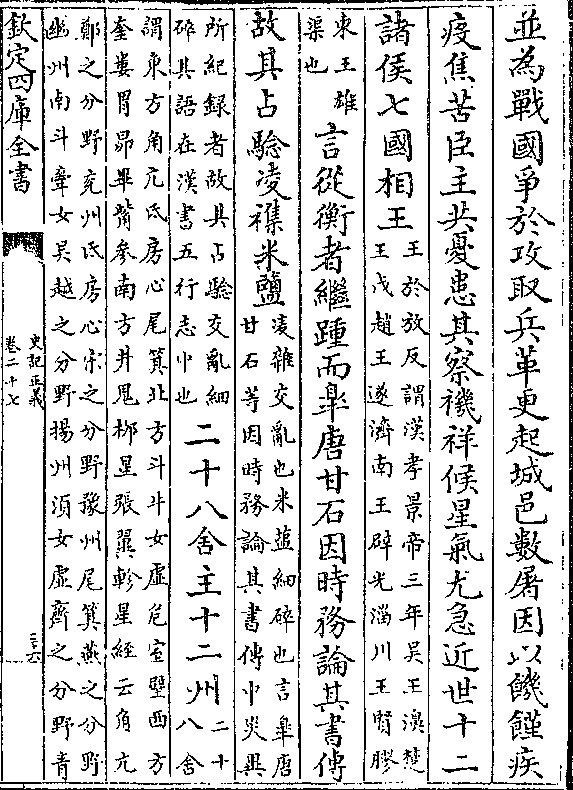 並為戰國爭於攻取兵革更起城邑數屠因以饑饉疾
疫焦苦臣主共憂患其察禨祥候星氣尤急近世十二
諸侯七國相王王於放反謂漢孝景帝三年吳王濞楚
王戊趙王遂濟南王辟光淄川王賢膠
東王雄
渠也言從衡者繼踵而臯唐甘石因時務論其書傳
故其占驗凌襍米鹽凌雜交亂也米鹽細碎也言臯唐
甘石等因時務論其書傳中災異
所紀録者故其占驗交亂細
碎其語在漢書五行志中也二十八舍主十二州二十
八舍
謂東方角亢氐房心尾箕北方斗牛女虛危室壁西方
奎婁胃昴畢觜參南方井鬼栁星張翼軫星經云角亢
鄭之分野兖州氐房心宋之分野豫州尾箕燕之分野
幽州南斗牽女吳越之分野揚州須女虛齊之分野青
欽定四庫全書
史記正義
卷二十七
三六